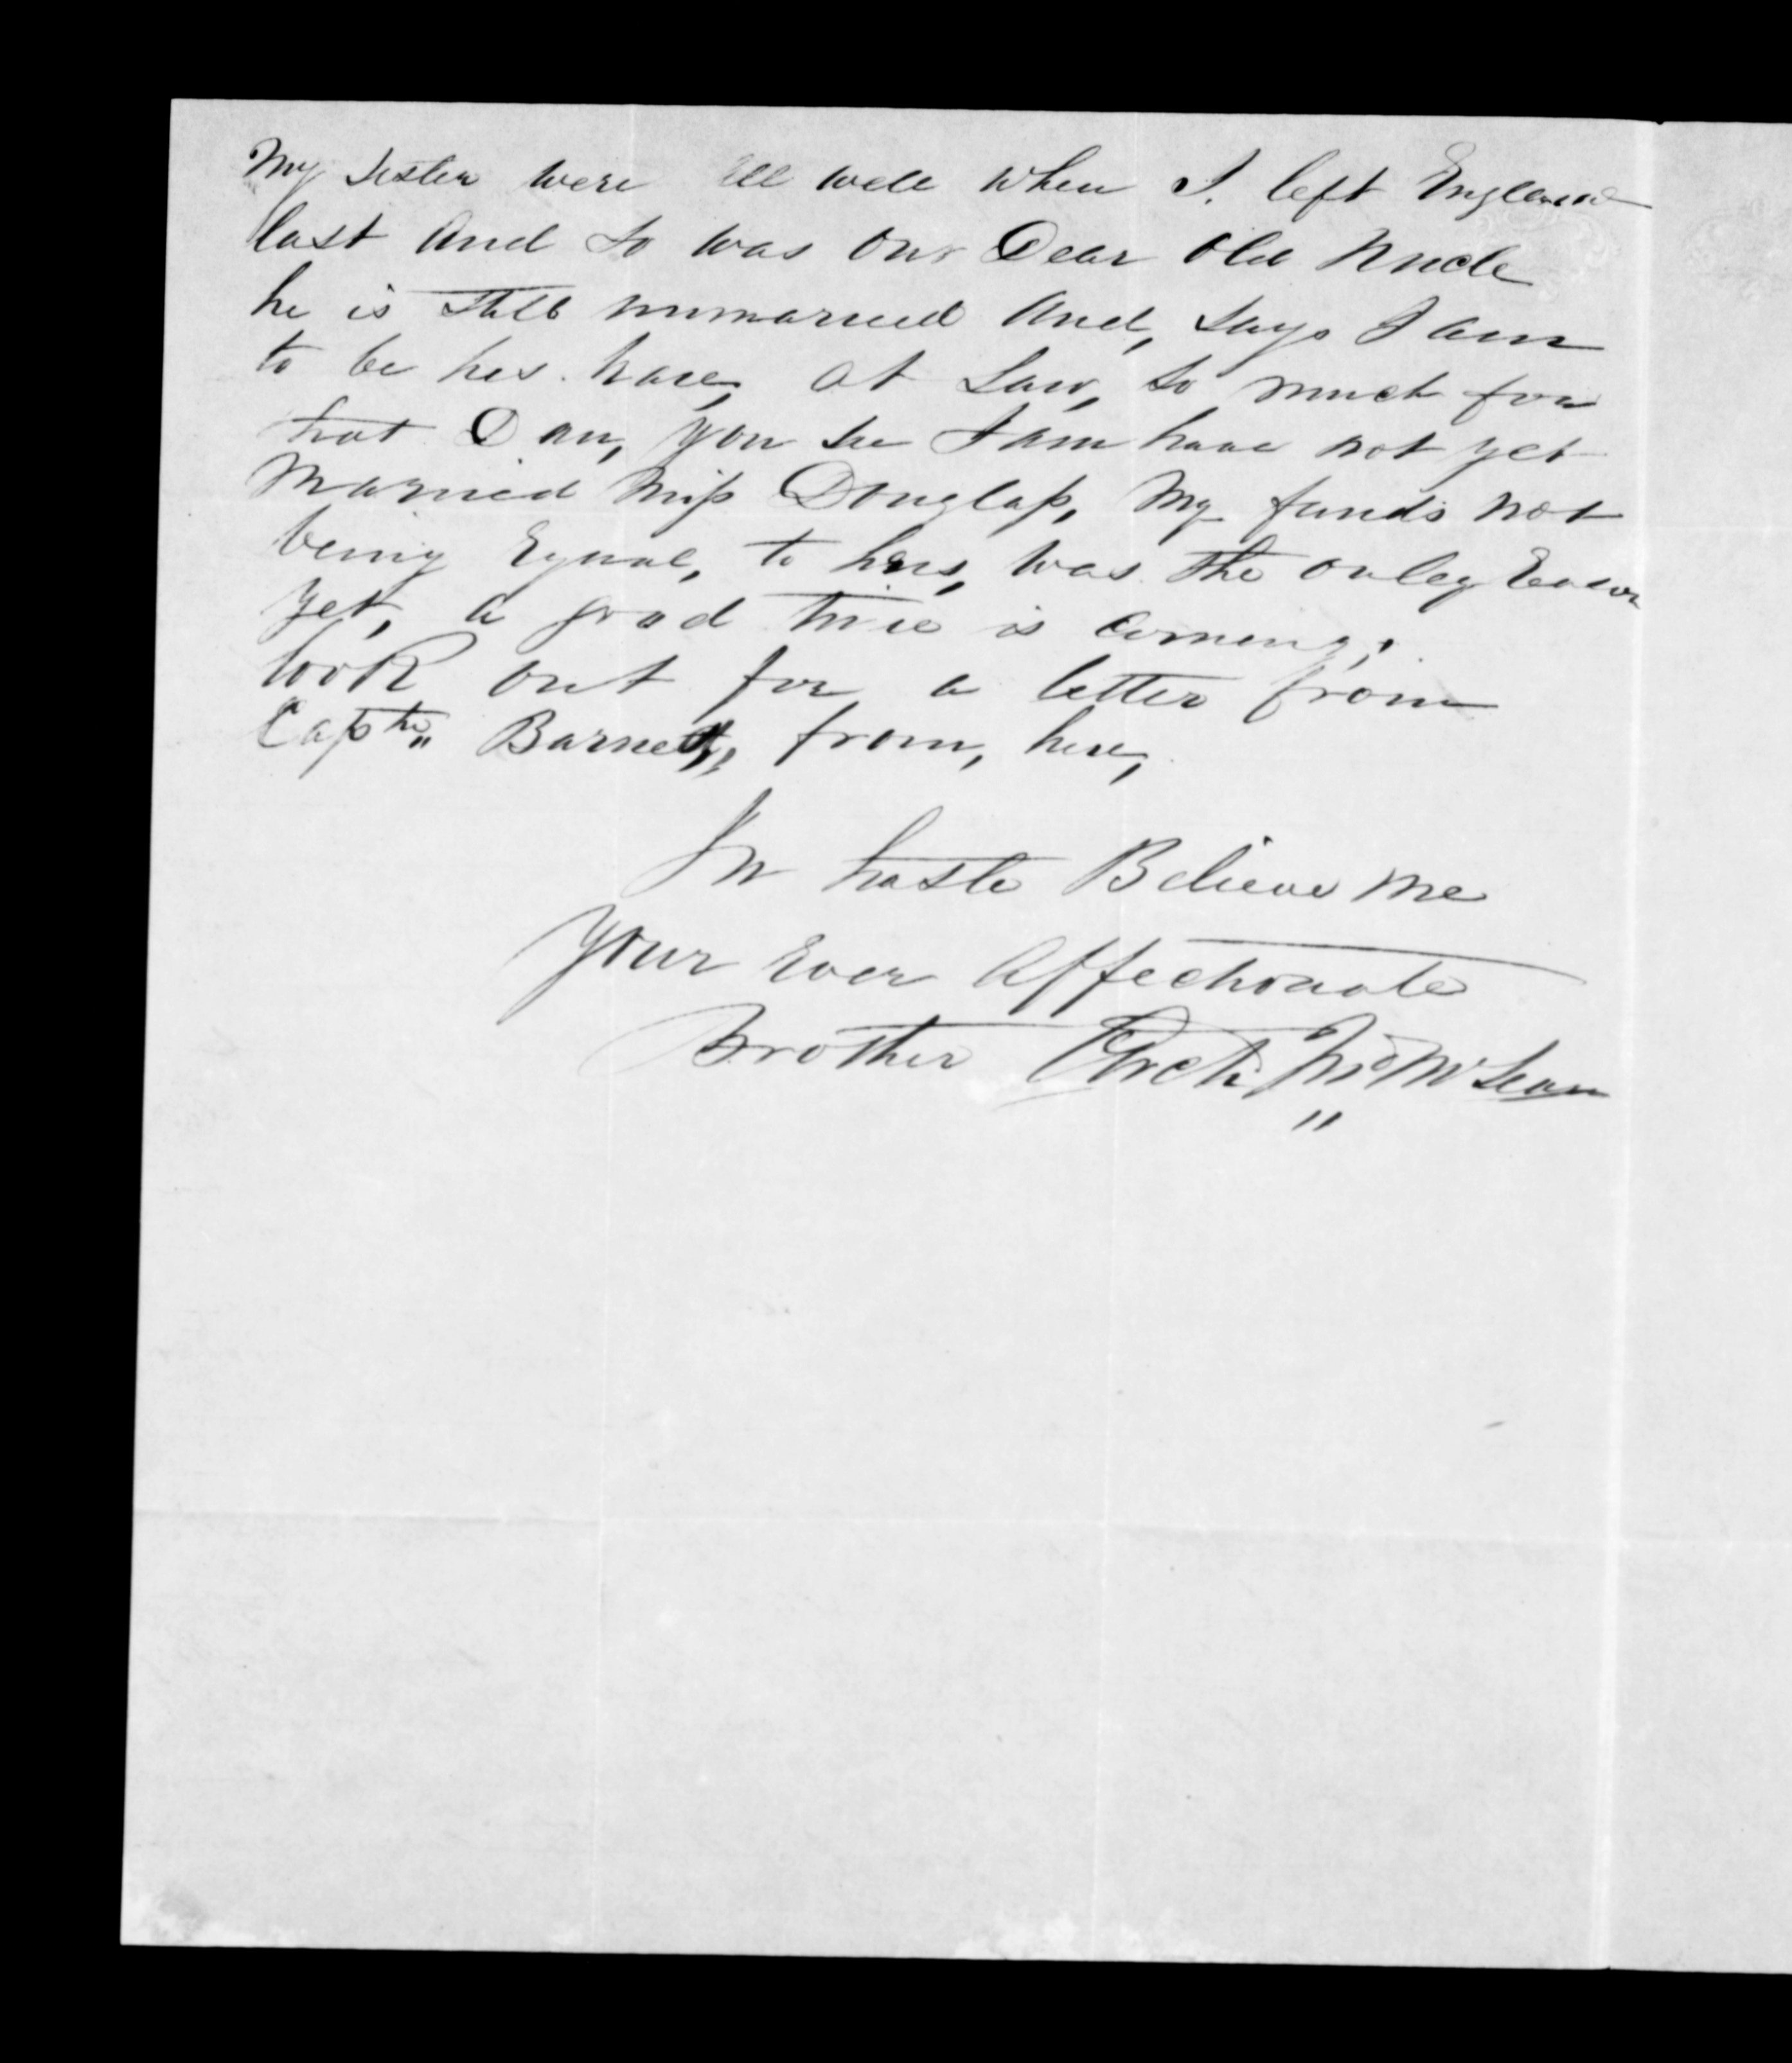 My Sister were all well when I left England
last And So was our Dear Old Uncle
he is still unmarried And, Says I am
to be his hare, at Law, So much for
that Dan, you See I am have not yet
Married Miss Douglass, My funds not
being Equal, to hers, was the onley
yet, a good time is Comeing,
look out for a letter from
Captn" Barnett, from, here,
In haste Believe Me
Your Ever Affectionate
Brother Archd McLean